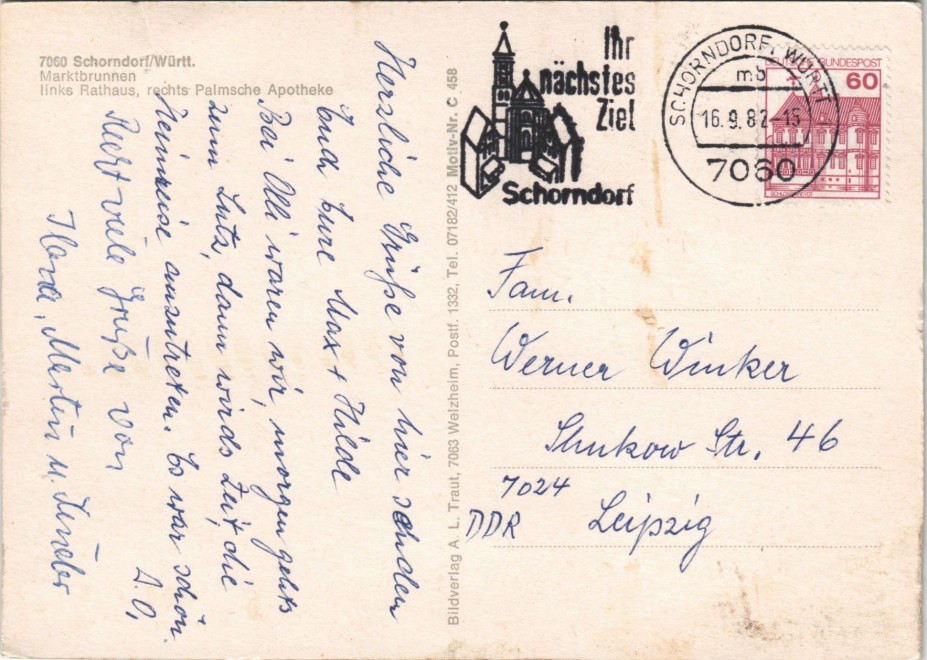 7060 Schorndorf/Württ.
Marktbrunnen
links Rathaus, rechts Palmsche Apotheke
Herzliche Grüße von hier senden
Euch Eure Max + Hilde
Bei Olli waren wir, morgen gehts
zum Lutz, dann wirds Zeit, die
Heimreise anzutreten. Es war schön.
D.O.
Auch viele Grüße von
Martin u. Kinder
Bildverlag A. L. Traut, 7063 Welzheim, Postf. 1332, Tel. 07182/412 Motiv-Nr. C 458
Ihr
nächstes
Ziel
Schorndorf
SCHORNDORF, WÜRTT
mb
16.9.82-15
7060
DEUTSCHE BUNDESPOST
60
Fam.
Werner Winker
Shukow Str. 46
7024
DDR Leipzig